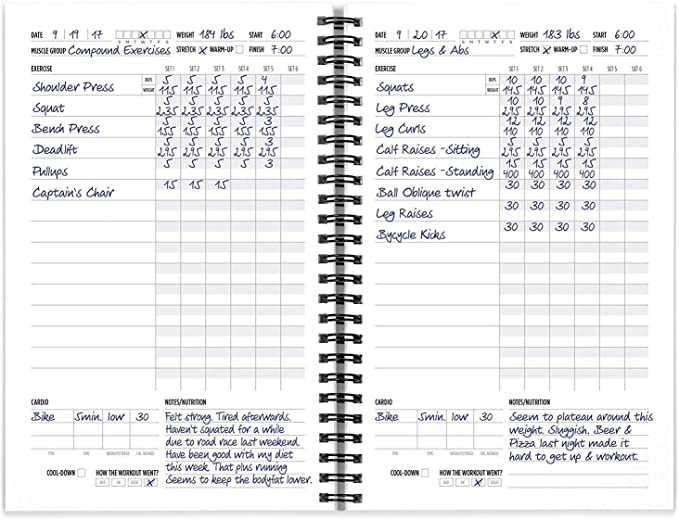 DATE 9 / 19 / 17 X S M T W T F S WEIGHT 184 lbs START 6:00
MUSCLE GROUP Compound Exercises STRETCH X WARM-UP FINISH 7:00
EXERCISE SET 1 SET 2 SET 3 SET 4 SET 5 SET 6
Shoulder Press REPS 5 5 5 5 4
WEIGHT 115 115 115 115 115
Squat 5 5 5 5 5
235 235 235 235 235
Bench Press 5 5 5 5 3
155 155 155 155 155
Deadlift 5 5 5 5 3
295 295 295 295 295
Pullups 5 5 5 5 3
Captain's Chair 15 15 15
CARDIO
Bike 5min. low 30
TYPE TIME
COOL-DOWN HOW THE WORKOUT WENT?
BAD OK GOOD X
NOTES/NUTRITION
Felt strong. Tired afterwards.
Haven't squated for a while
due to road race last weekend.
Have been good with my diet
this week. That plus running
Seems to keep the bodyfat lower.
DATE 9 / 20 / 17 X S M T W T F S WEIGHT 183 lbs START 6:00
MUSCLE GROUP Legs & Abs STRETCH X WARM-UP FINISH 7:00
EXERCISE SET 1 SET 2 SET 3 SET 4 SET 5 SET 6
Squats REPS 10 10 10 9
WEIGHT 145 145 145 145
Leg Press 10 10 9 8
295 295 295 295
Leg Curls 12 12 12 12
110 110 110 110
Calf Raises -Sitting
295 295 295 295
Calf Raises -Standing 15 15 15 15
400 400 400 400
Ball Oblique twist 30 30 30 30
Leg Raises 30 30 30 30
Bycycle Kicks 30 30 30 30
CARDIO
Bike 5min. low 30
TYPE TIME
COOL-DOWN HOW THE WORKOUT WENT?
BAD OK X GOOD
NOTES/NUTRITION
Seem to plateau around this
weight. Sluggish. Beer &
Pizza last night made it
hard to get up & workout.